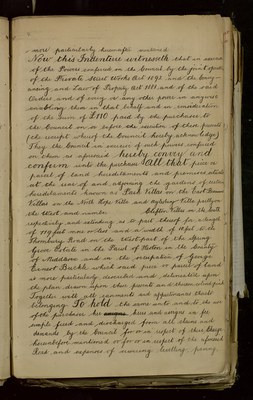 more particularly hereinafter mentioned
Now this Indenture witnesseth that in exercise
of the Powers conferred on the Council by the joint effect
of the Private Street Works Act 1892 and the Conveyancing
and Law of Property Act 1881 and of the said
and of every or any other power in anywise
enabling them in that behalf and in consideration
of the Sum of £110 paid by the purchaser to
the Council on or before the execution of these presents
(the receipt whereof the Council hereby acknowledge)
They the Council in exercise of such powers conferred
on them as aforesaid hereby convey and
confirm unto the purchaser All that piece or
parcel of land hereditaments and premises situate
at the rear of and adjoining the gardens of the
hereditaments known as Park Villas on the East
Villas on the North Hope Villa and Aylesbury Villa
the West and number Clifton Villas on the South
respectively and extending as to part thereof for a length
of 119 feet more or less and a width of 18 feet in
Thornbury Road on the West part of the Spring
Grove Estate in the Parish of Heston in the County
of Middlesex and in the occupation of George
which said piece or parcel of land
is more particularly described and delineated upon
the plan drawn upon these presents and thereon coloured pink
Together with all easements and appurtenances thereto
belonging To hold the same unto and to the use
of the purchaser his heirs and assigns in fee
simple freed and discharged from all claims and
demands by the Council for or in respect of their Charge
hereinbefore mentioned or for or in respect of the aforesaid
and expenses of making levelling paving